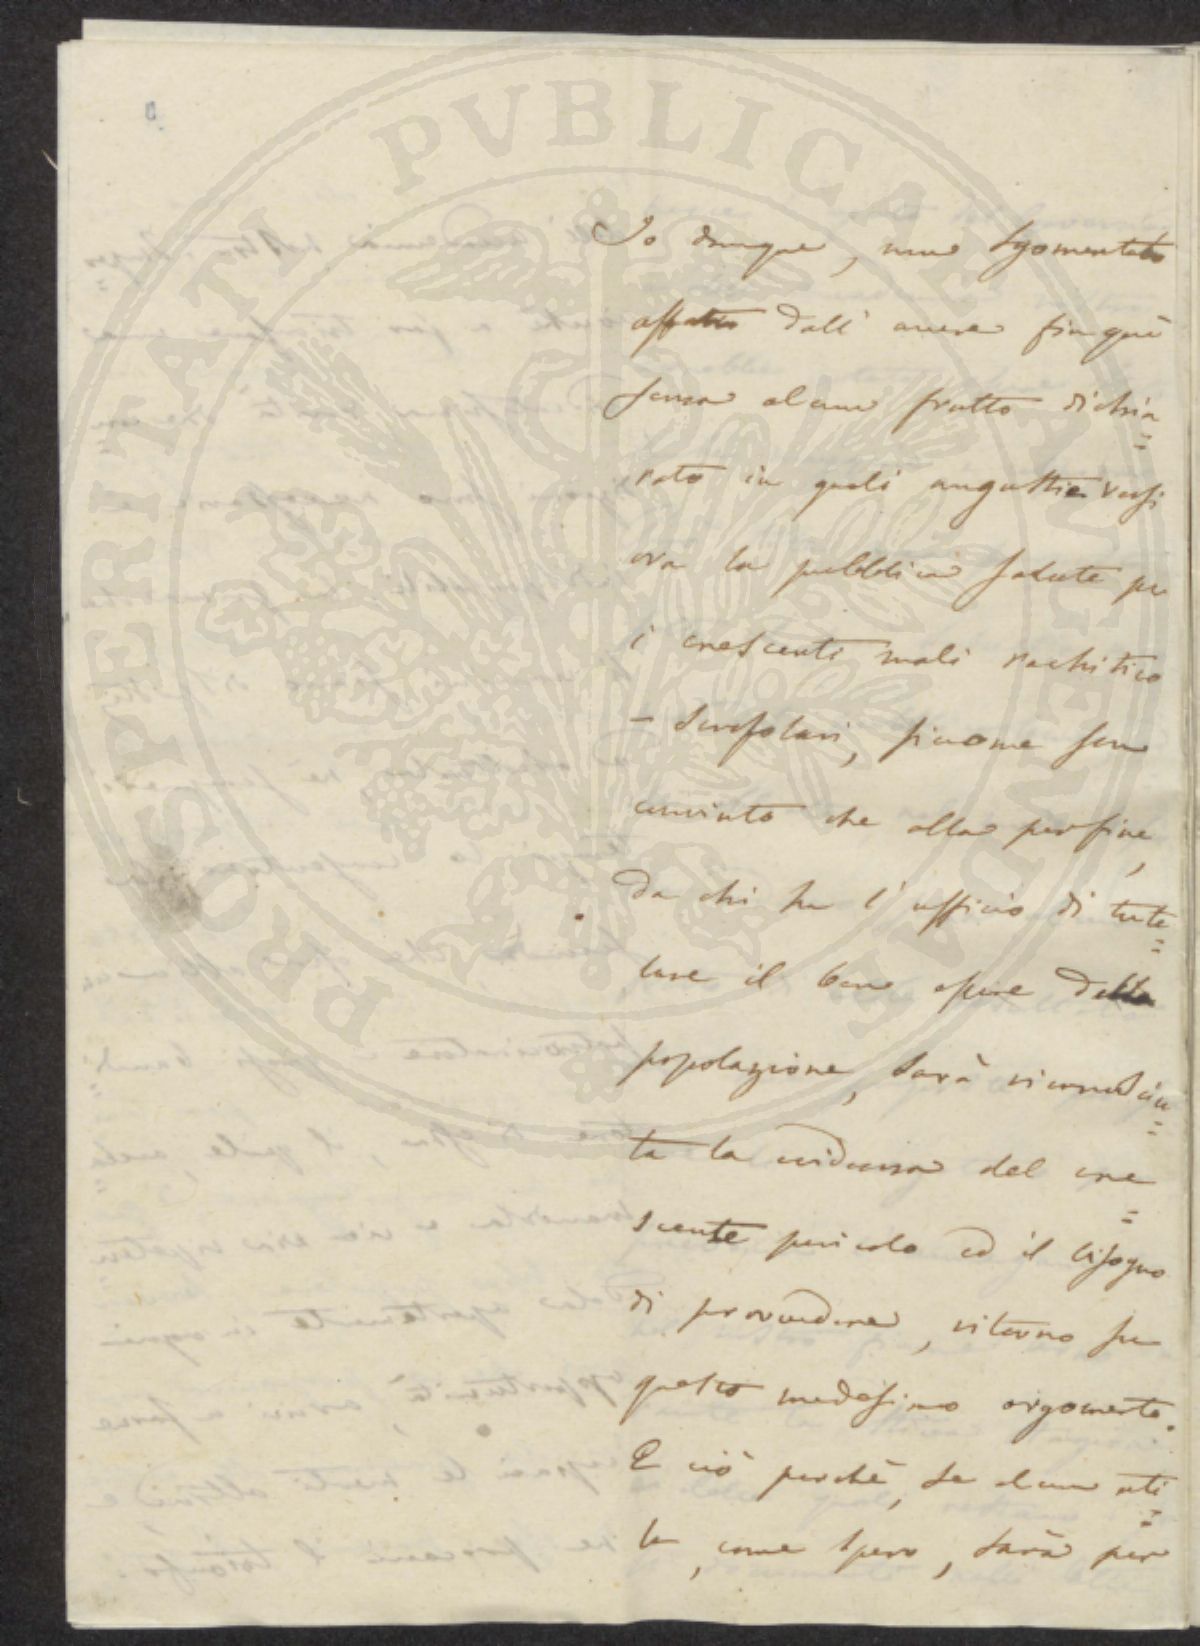 PROSPERITATI PVBLICAE AVGENDAE
Io dunque, non sgomentato
affatto dall' avere finquì
senza alcun frutto dichia=
rato in quali angustie versi
ora la pubblica salute per
i crescenti mali rachitico
- scrofolari, siccome son
convinto che alla perfine,
da chi ha l' ufficio di tute=
lare il ben essere della
popolazione, sarà riconosciu=
ta la evidenza del cre=
scente pericolo ed il bisogno
di provvedere, ritorno su
questo medesimo argomento.
E ciò perchè, se alcun uti=
le, come spero, sarà per